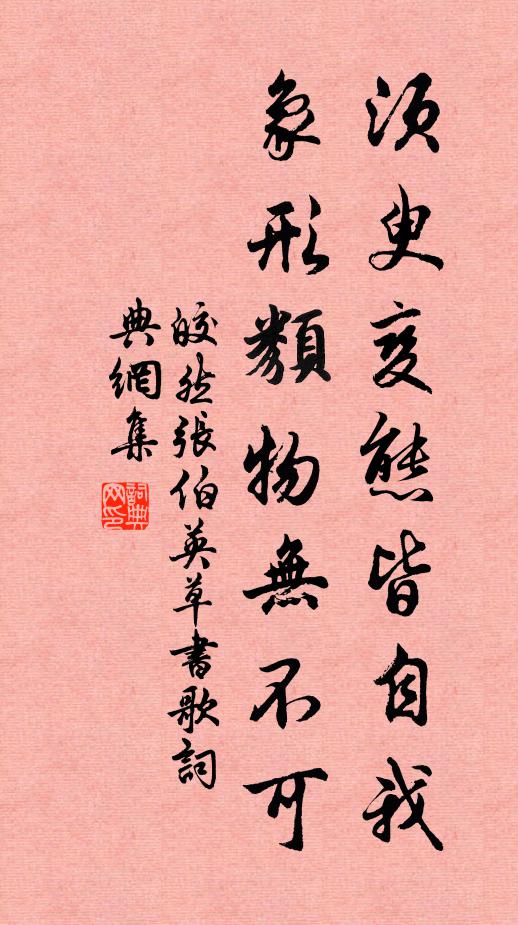 須臾變態皆自我
象形類物無不可
皎然張伯英草書歌詞
典網集
詞典
网印